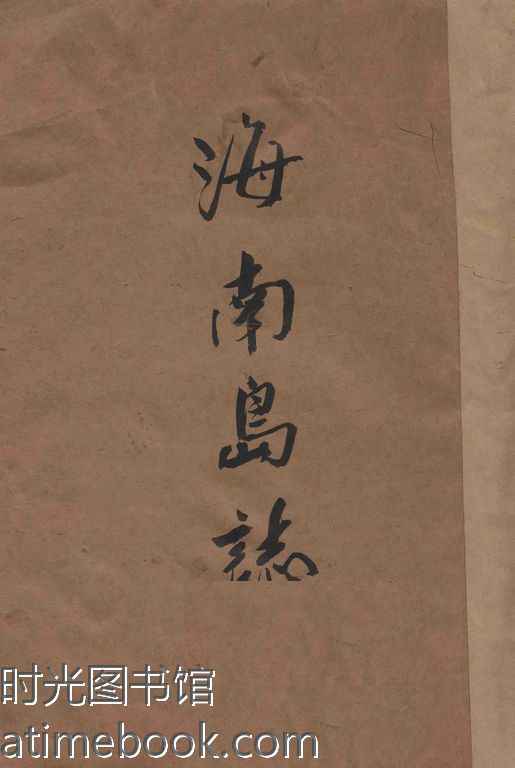 海南島誌
时光图书馆
atimebook.com